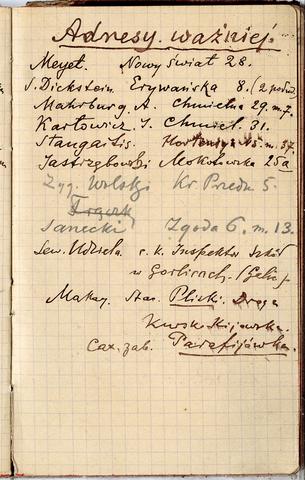 Adresy ważniej.
Meyet. Nowy świat 28.
S. Dickstein. Erywańska 8. (2 podw.
Mahrburg. A. Chmielna 29. m. 7.
Karłowicz. J. Chmiel. 31.
Staugaitis. Hortensya 5. m. 37.
Jastrzębowski Mokotowska 25a
Zyg. Wolski Kr. Przedm 5.
Janecki Zgoda 6. m. 13.
Sew. Udziela c. k. Inspektor Szkół
w Gorlicach. (Galic.
Makay. Stac. Pliski. Droga
Kursk. Kijowska.
Parafijówka.